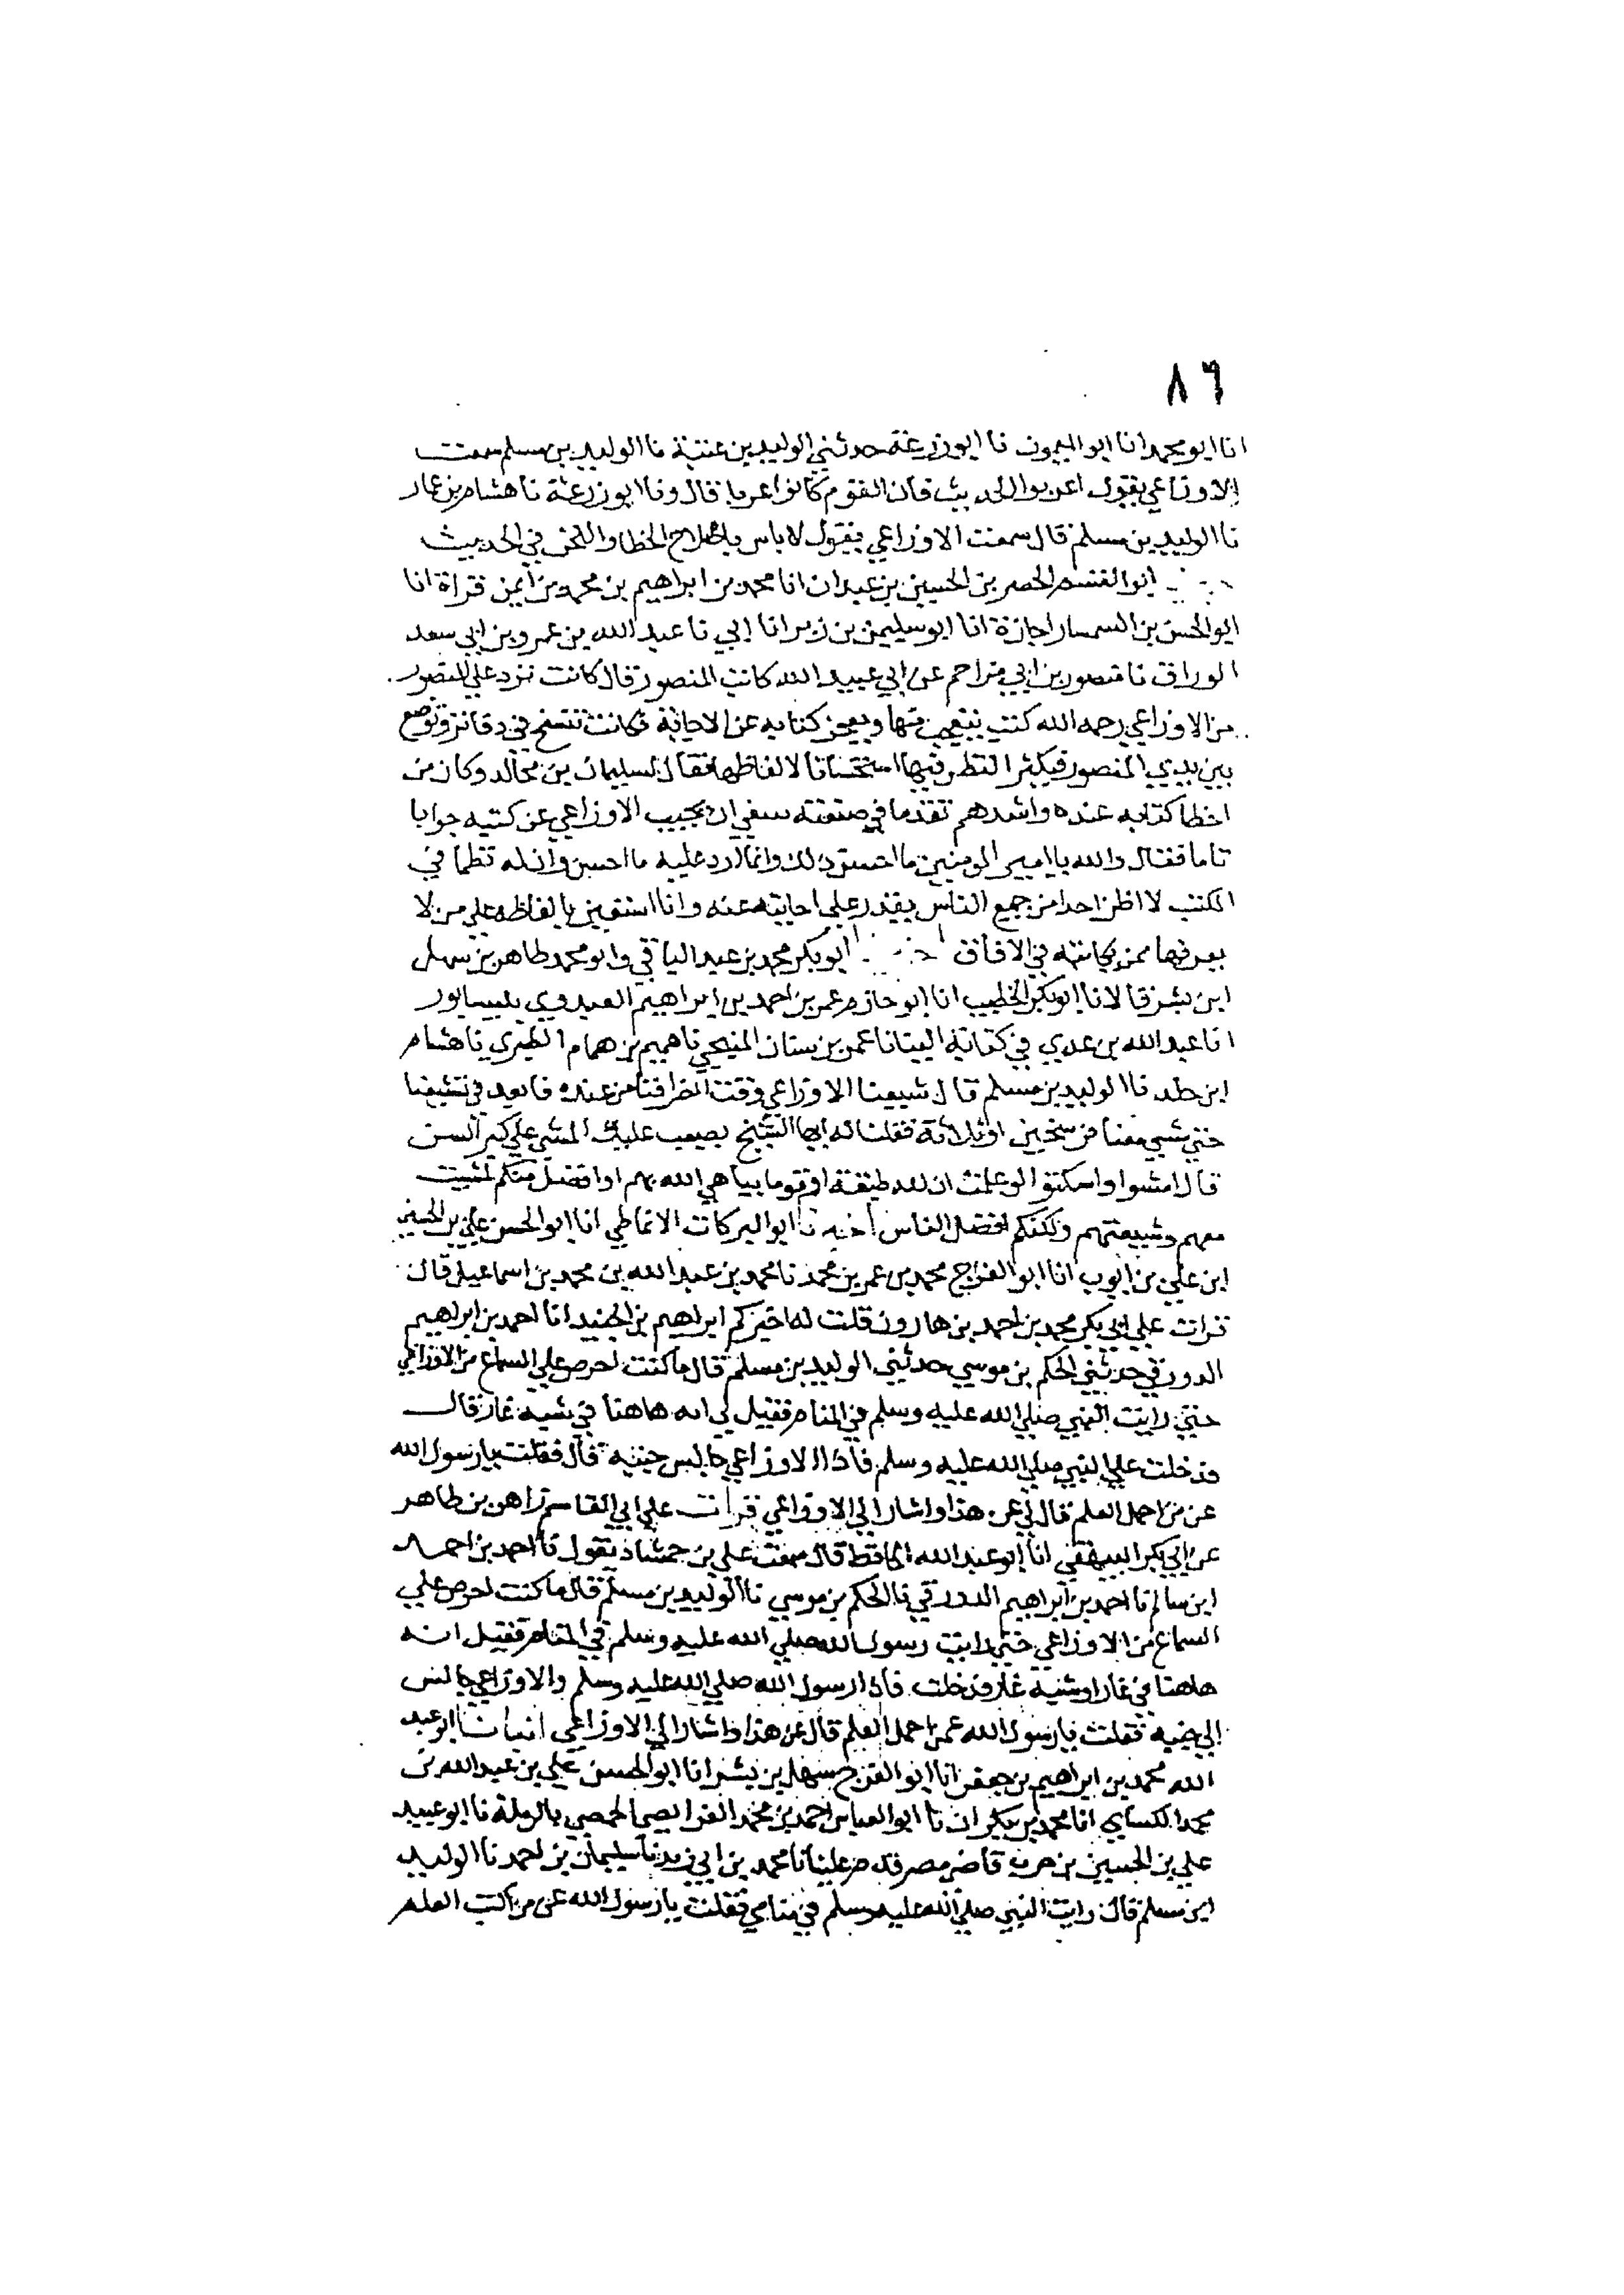 ٨٦
انا ابو محمد انا ابو الميمون نا ابو زرعة حدثني الوليد بن عتبة نا الوليد بن مسلم سمعت
الاوزاعي يقول اعربوا الحديث فان القوم كانوا عربا قال ونا ابو زرعة نا هشام بن عمار
نا الوليد بن مسلم قال سمعت الاوزاعي يقول لا باس باصلاح الخطا واللحن في الحديث
ابو القسم الخضر بن الحسين بن عبدان انا محمد بن ابراهيم بن محمد بن ايمن قراة انا
ابو الحسن بن السمسار اجازة انا ابو سليمن بن زبر انا ابي نا عبد الله بن عمرو بن ابي سعد
الوراق نا منصور بن ابي مزاحم عن ابي عبيد الله كاتب المنصور قال كانت ترد علي المنصور
من الاوزاعي رحمه الله كتب يتعجب منها ويعجز كتابه عن الاجابة فكانت تنسخ في دفاتر وتوضع
بين يدي المنصور فيكثر النظر فيها استحسانا لالفاظها فقال لسليمان بن مخالد وكان من
احظا كتابه عنده واشدهم تقدما في صنعته ينبغي ان تجيب الاوزاعي عن كتبه جوابا
تاما فقال والله يا امير المومنين ما احسن ذلك وانما ارد عليه ما احسن وان له نظما في
الكتب لا اظن احدا من جميع الناس يقدر علي اجابته عنه وانا استعين بالفاظه علي من لا
يعرفها ممن نكاتبه في الافاق ابو بكر محمد بن عبد الباقي وابو محمد طاهر بن سهل
ابن بشر قالا نا ابو بكر الخطيب انا ابو حازم عمر بن احمد بن ابراهيم العبدوي بنيسابور
انا عبد الله بن عدي في كتابة الينا نا عمر بن سنان المنبجي نا هميم بن همام الطبري نا هشام
ابن خلد نا الوليد بن مسلم قال شيعنا الاوزاعي وقت انصرافنا من عنده فابعد في تشييعنا
حتي مشي معنا فرسخين او ثلاثة فقلنا له ايها الشيخ يصعب عليك المشي علي كبر السن
قال امشوا واسكتوا لو علمت ان لله طبقة او قوما يباهي الله بهم او افضل منكم لمشيت
معهم وشيعتهم ولكنكم افضل الناس اخبرنا ابو البركات الانماطي انا ابو الحسن علي بن الحسين
ابن علي بن ايوب انا ابو الفرج محمد بن عمر بن محمد نا محمد بن عبد الله بن محمد بن اسماعيل قال
قرات علي ابي بكر محمد بن احمد بن هارون قلت له اخبركم ابراهيم بن الجنيد انا احمد بن ابراهيم
الدورقي حدثني الحكم بن موسي حدثني الوليد بن مسلم قال ما كنت احرص علي السماع من الاوزاعي
حتي رايت النبي صلي الله عليه وسلم في المنام فقيل لي انه هاهنا في شبه غار قال
فدخلت علي النبي صلي الله عليه وسلم فاذا الاوزاعي جالس جنبه قال فقلت يا رسول الله
عن من احمل العلم قال لي عن هذا واشار الي الاوزاعي قرات علي ابي القاسم زاهر بن طاهر
عن ابي بكر البيهقي انا ابو عبد الله الحافظ قال سمعت علي بن حمشاذ يقول نا احمد بن احمد
ابن سالم نا احمد بن ابراهيم الدورقي نا الحكم بن موسي نا الوليد بن مسلم قال ما كنت احرص علي
السماع من الاوزاعي حتي رايت رسول الله صلي الله عليه وسلم في المنام فقيل انه
هاهنا في غار او شبه غار فدخلت فاذا رسول الله صلي الله عليه وسلم والاوزاعي جالس
الي جنبه فقلت يا رسول الله عمن احمل العلم قال عن هذا واشار الي الاوزاعي انبانا ابو عبد
الله محمد بن ابراهيم بن جعفر انا ابو الفرج سهل بن بشر انا ابو الحسن علي بن عبيد الله بن
محمد الكساي انا محمد بن بكران نا ابو العباس احمد بن محمد الفرايضي الحمصي بالرملة نا ابو عبيد
علي بن الحسين بن حرب قاضي مصر قدم علينا نا محمد بن ابي زيد نا سليمان بن احمد نا الوليد
ابن مسلم قال رايت النبي صلي الله عليه وسلم في منامي فقلت يا رسول الله عن من اكتب العلم